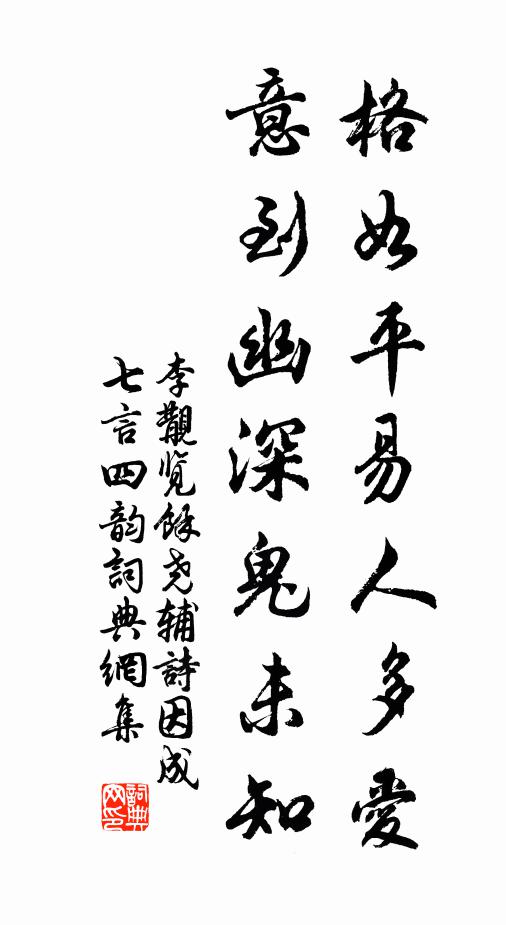 格如平易人多愛
意到幽深鬼未知
李觀覽餘堯輔詩因成
七言四韵詞典網集
詞典网印